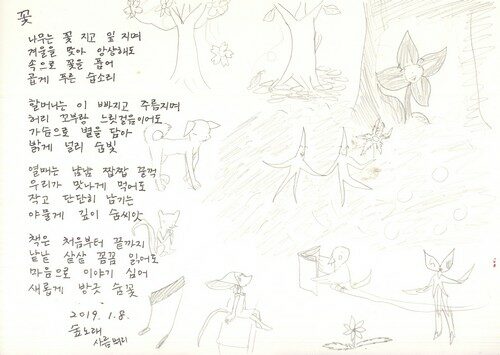 꽃
나무는 꽃 지고 잎 지며
겨울을 맞아 앙상해도
속으로 꽃을 품어
곱게 푸른 숨소리
할머니는 이 빠지고 주름지며
허리 꼬부랑 느릿걸음이어도
가슴으로 별을 담아
밝게 널리 숨빛
열매는 냠냠 짭짭 꿀꺽
우리가 맛나게 먹어도
작고 단단히 남기는
야물게 깊이 숨씨앗
책은 처음부터 끝까지
낱낱 샅샅 꼼꼼 읽어도
마음으로 이야기 심어
새롭게 방긋 숨꽃
2019. 1. 8.
숲노래